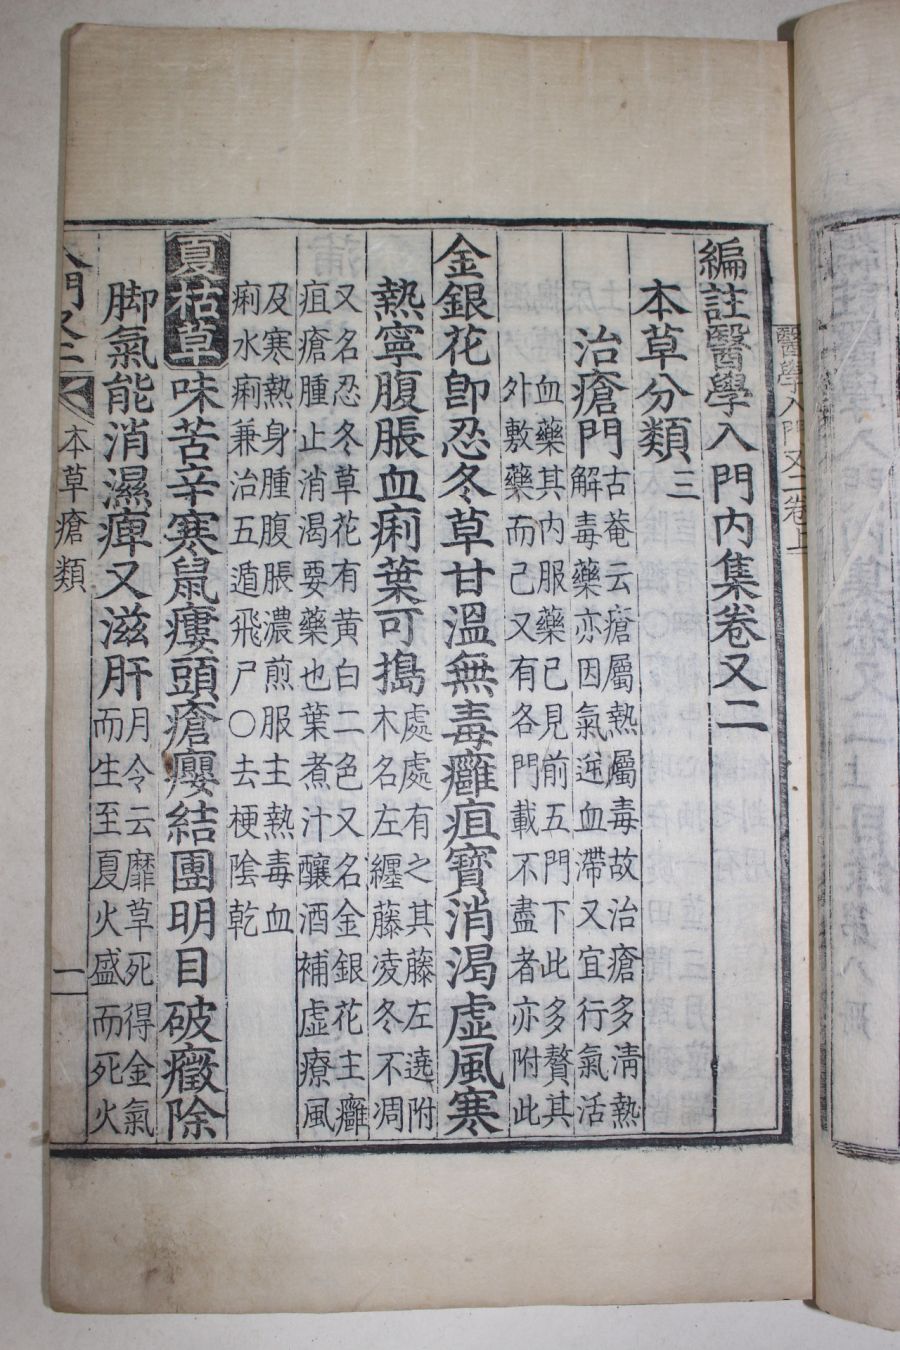 醫學入門又二卷上
編註醫學入門內集卷又二
本草分類三
治瘡門
古菴云瘡屬熱屬毒故治瘡多淸熱
解毒藥亦因氣逆血滯又宜行氣活
血藥其內服藥已見前五門下此多贅其
外敷藥而已又有各門載不盡者亦附此
金銀花卽忍冬草甘溫無毒癰疽寶消渴虛風寒
熱寧腹脹血痢葉可搗
處處有之其藤左遶附
木名左纏藤凌冬不凋
又名忍冬草花有黃白二色又名金銀花主癰
疽瘡腫止消渴要藥也葉煮汁釀酒補虛療風
及寒熱身腫腹脹濃煎服主熱毒血
痢水痢兼治五遁飛尸○去梗陰乾
夏枯草味苦辛寒鼠瘻頭瘡癭結團明目破癥除
脚氣能消濕痺又滋肝
月令云靡草死得金氣
而生至夏火盛而死火
入門又二
本草瘡類
一